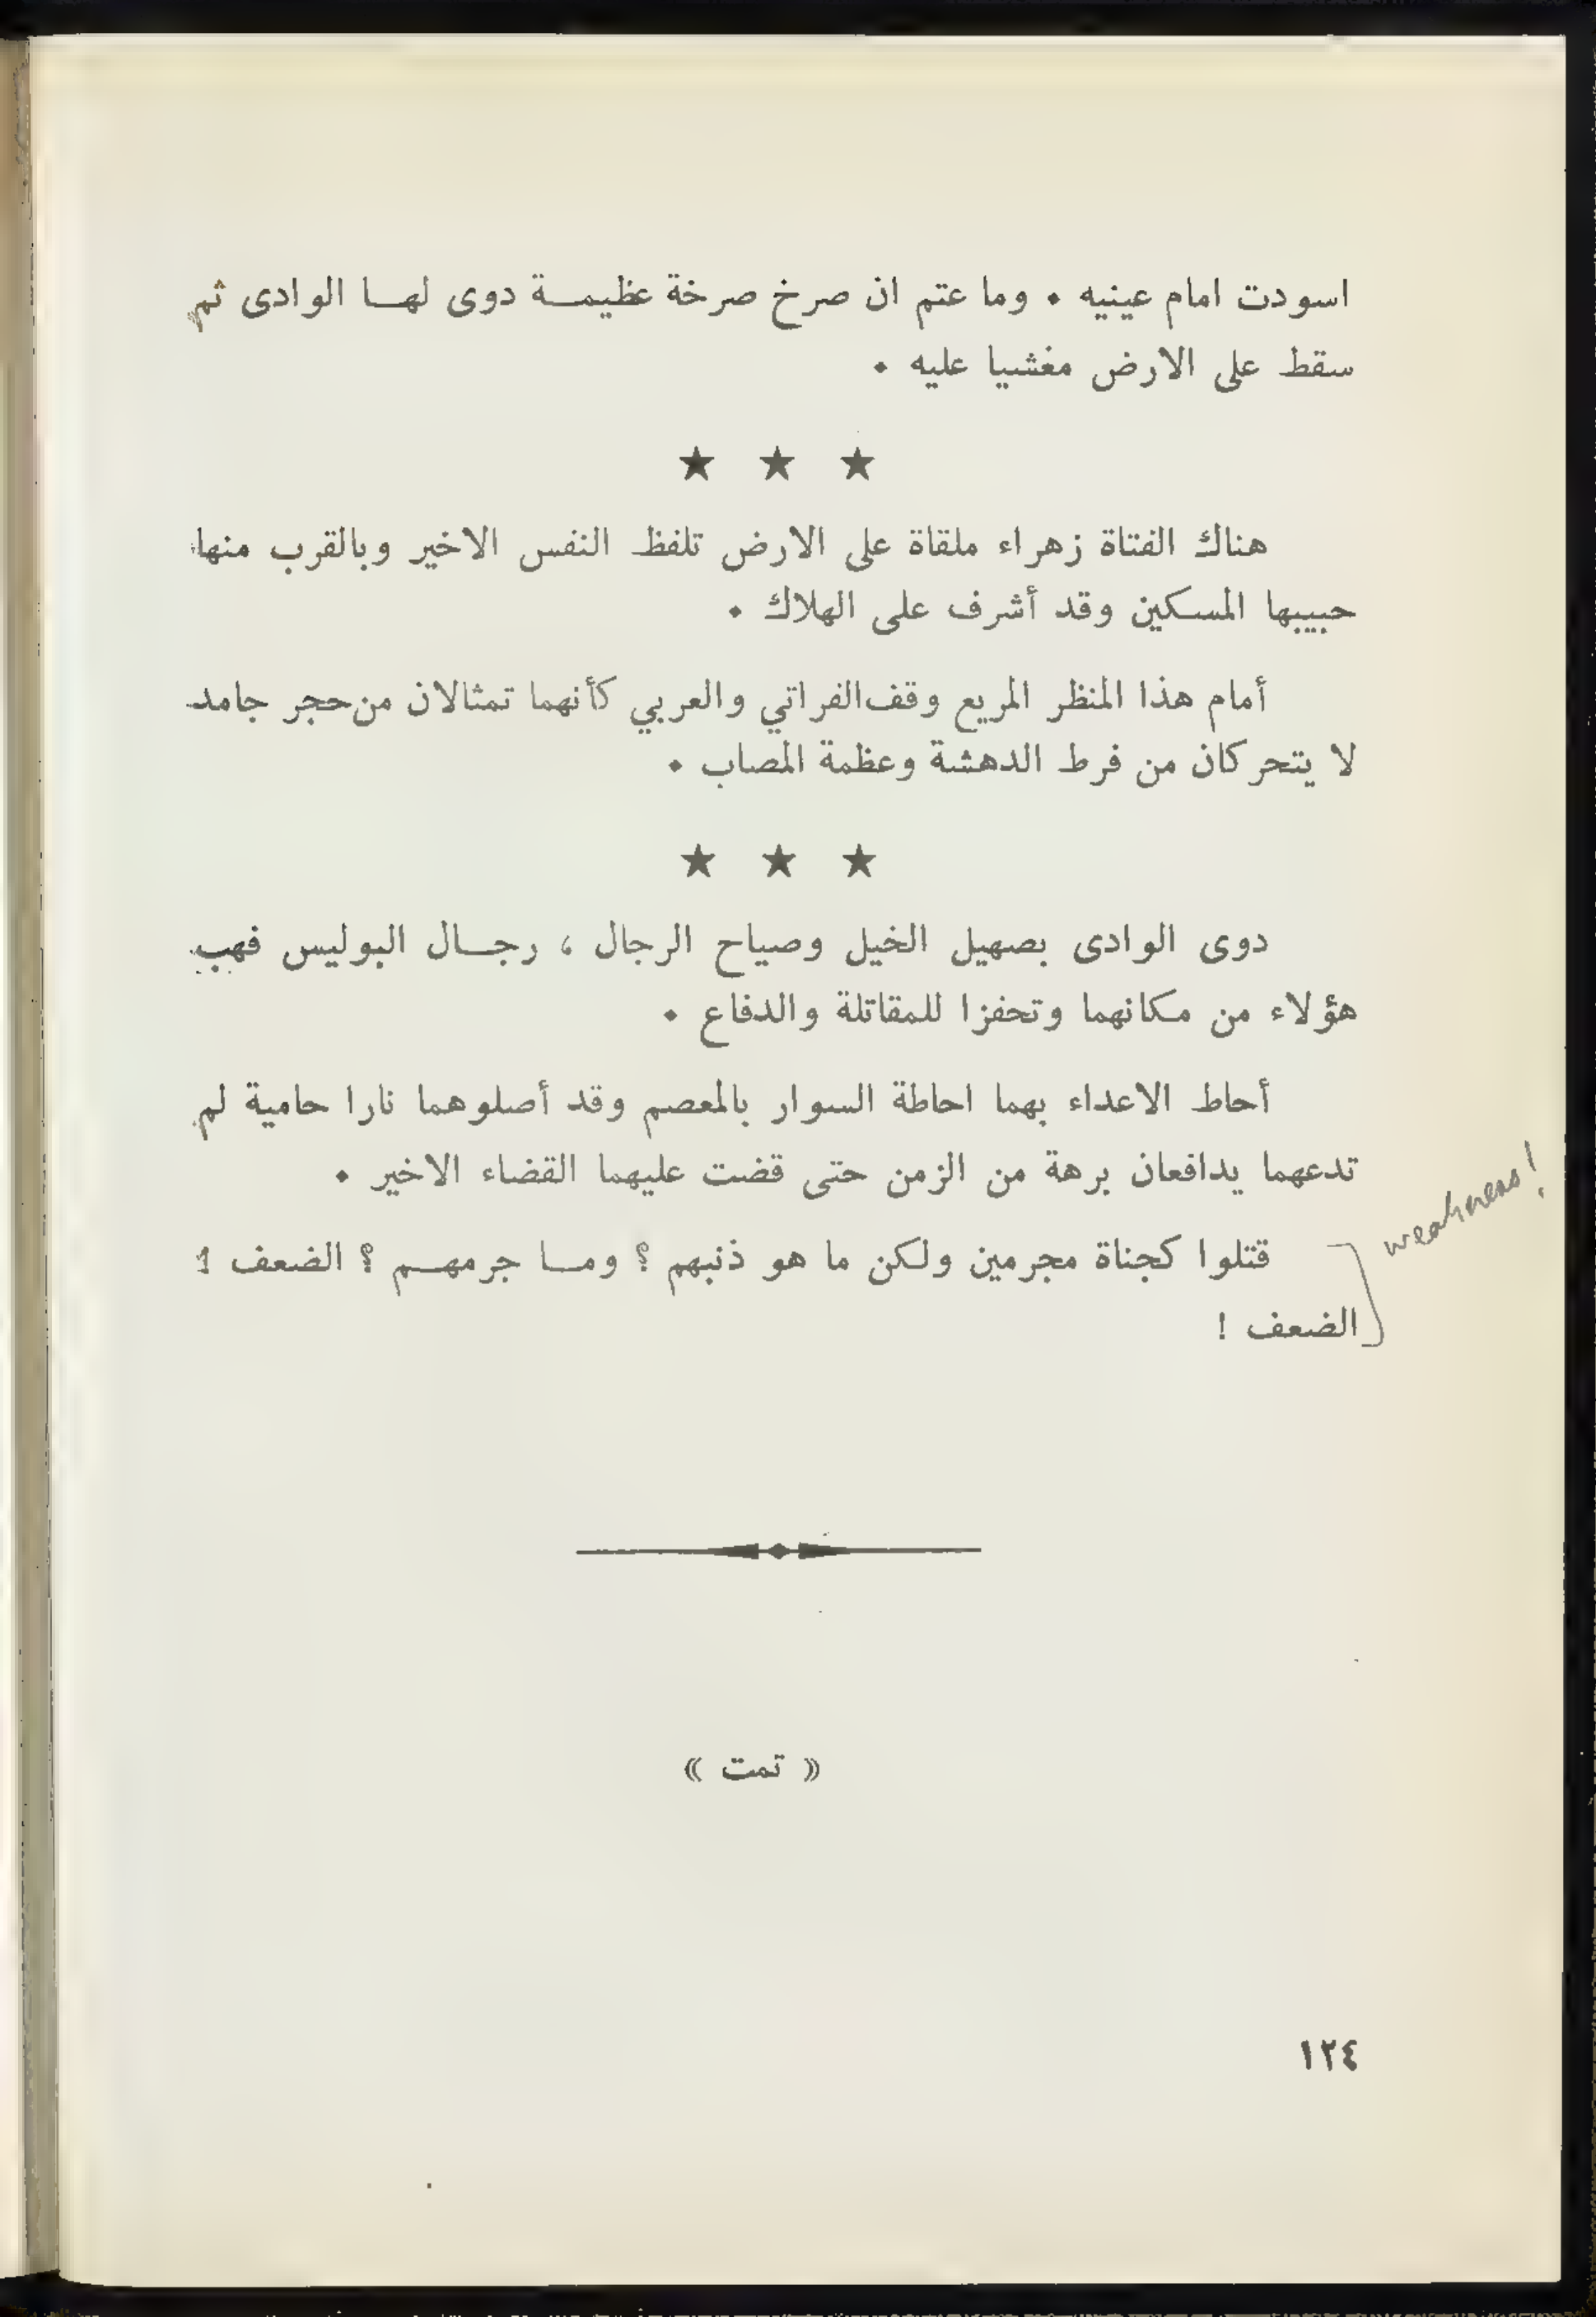 اسودت امام عينيه . وما عتم ان صرخ صرخة عظيمـــة دوى لهــا الوادى ثم
سقط على الارض مغشيا عليه .
★ ★ ★
هناك الفتاة زهراء ملقاة على الارض تلفظ النفس الاخير وبالقرب منها
حبيبها المسكين وقد أشرف على الهلاك .
أمام هذا المنظر المريع وقف الفراتي والعربي كأنهما تمثالان من حجر جامد
لا يتحركان من فرط الدهشة وعظمة المصاب .
★ ★ ★
دوى الوادى بصهيل الخيل وصياح الرجال ، رجــال البوليس فهب
هؤلاء من مكانهما وتحفزا للمقاتلة والدفاع .
أحاط الاعداء بهما احاطة السوار بالمعصم وقد أصلوهما نارا حامية لم
تدعهما يدافعان برهة من الزمن حتى قضت عليهما القضاء الاخير .
قتلوا كجناة مجرمين ولكن ما هو ذنبهم ؟ ومــا جرمهــم ؟ الضعف !
الضعف !
weakness!
« تمت »
١٢٤